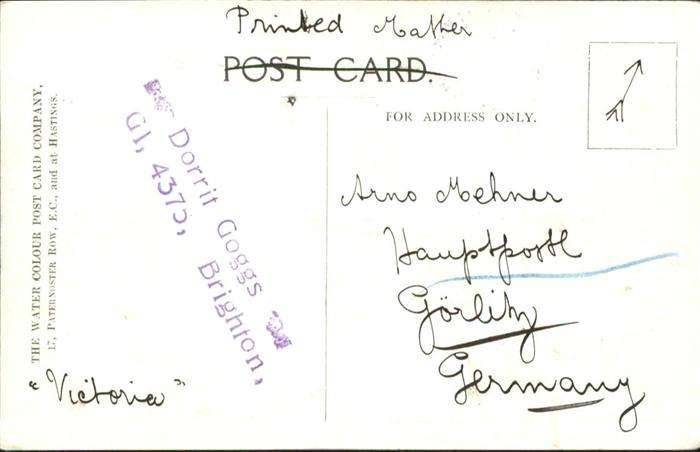 Printed Mather
POST CARD.
FOR ADDRESS ONLY.
THE WATER COLOUR POST CARD COMPANY,
17, PATERNOSTER ROW, E.C., and at HASTINGS.
Dorrit Goggs
GI, 4375, Brighton,
"Victoria"
Arno Mehner
Hauptpostl
Görlitz
Germany